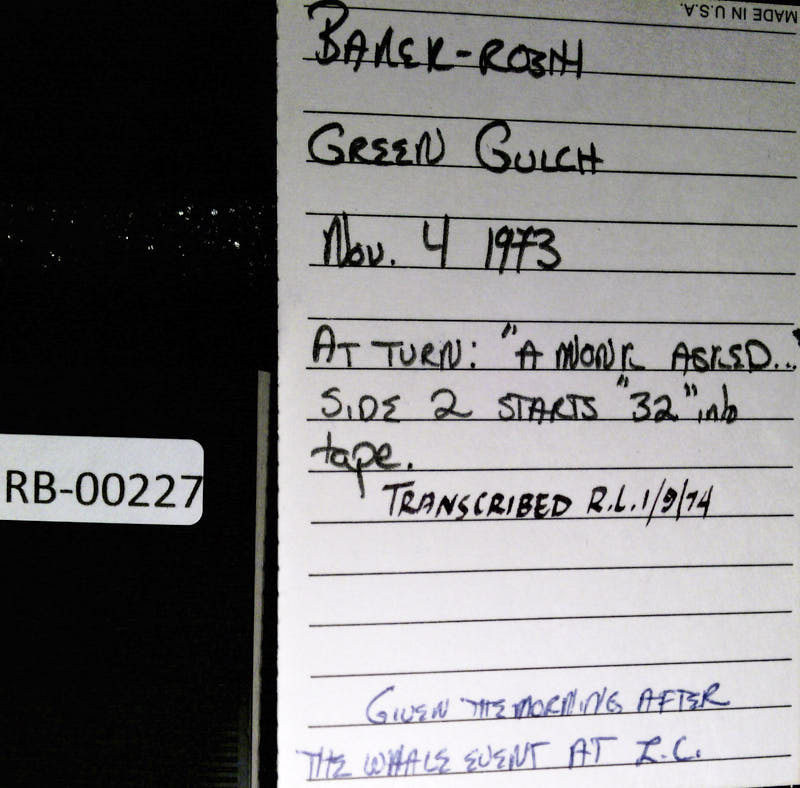 MADE IN U.S.A.
BAKER-ROSHI
GREEN GULCH
Nov. 4 1973
AT TURN: "A MONK ASKED..."
SIDE 2 STARTS "32" into
tape.
RB-00227
TRANSCRIBED R.L. 1/9/74
GIVEN THE MORNING AFTER
THE WHALE EVENT AT Z.C.